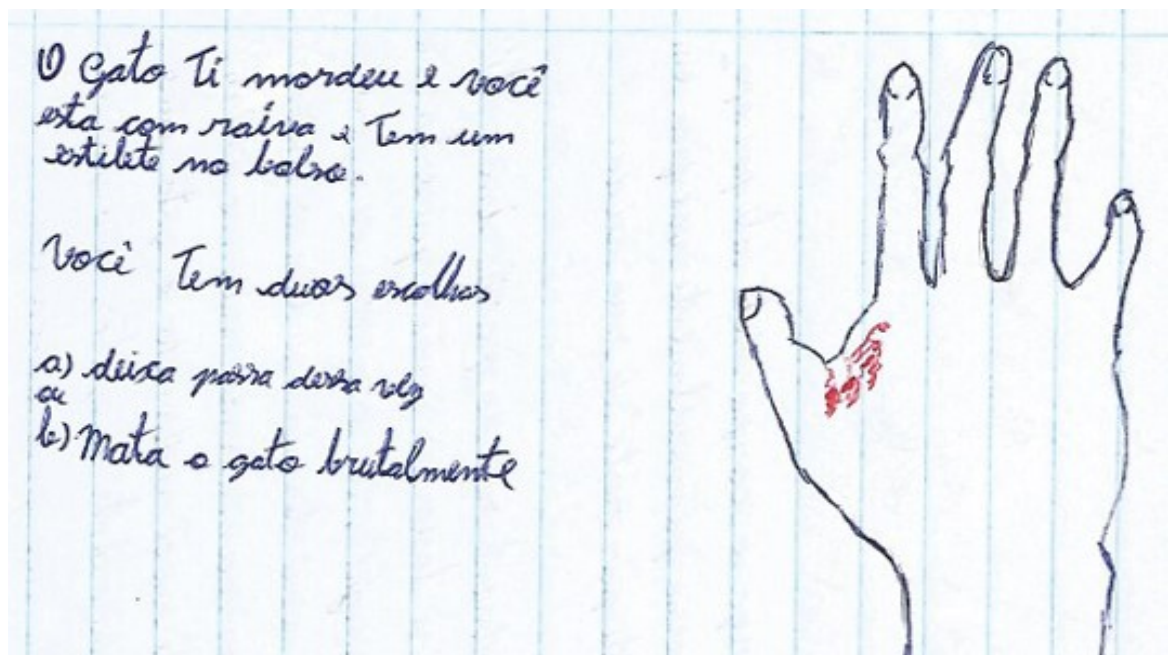 O Gato Ti mordeu e você
esta com raiva e Tem um
estilete no bolso.
Você Tem duas escolhas
a) deixa passa dessa vez
ou
b) Mata o gato brutalmente